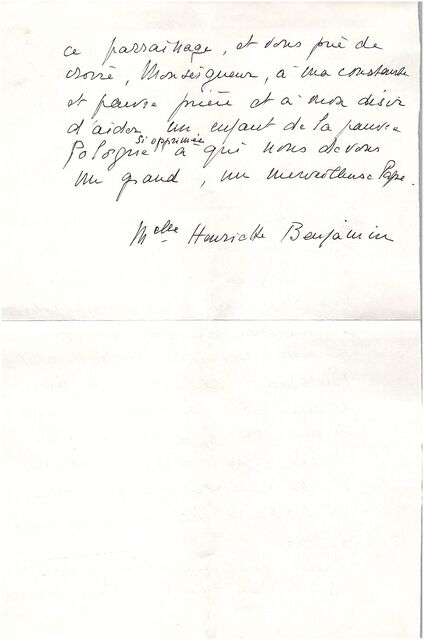 ce parrainage, et vous prie de
croire, Monseigneur, à ma constante
et pauvre prière et à mon désir
d'aider un enfant de la pauvre
Pologne si opprimée à qui nous devons
un grand, un merveilleux Pape.
Melle Henriette Benjamin